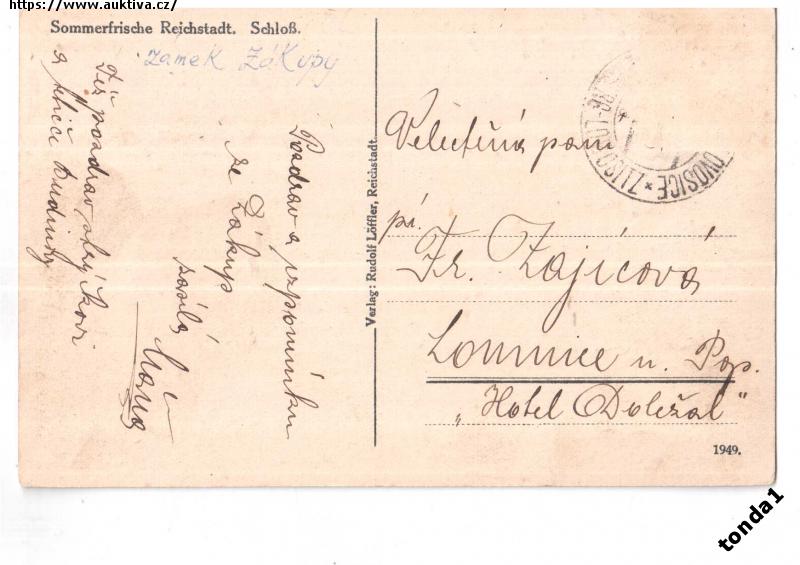 https://www.auktiva.cz/
Sommerfrische Reichstadt. Schloß.
zámek Zákupy
Pozdrav a vzpomínku
ze Zákup
zasílá
Též pozdrav
a
Verlag: Rudolf Löffler, Reichstadt.
Velectěná paní
pí.
Fr. Zajícová
Lomnice n. Pop.
„Hotel Doležal"
1949.
tonda1